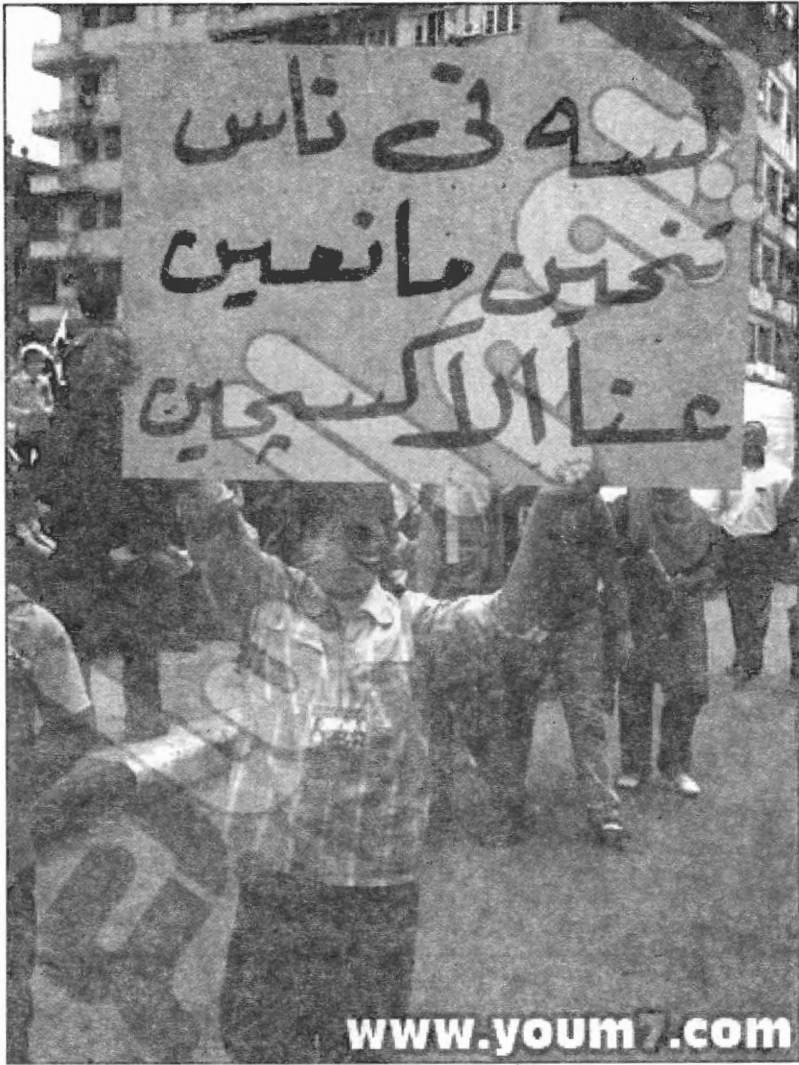 لسه فى ناس
تنحين مانعين
عنا الاكسيجين
www.youm7.com